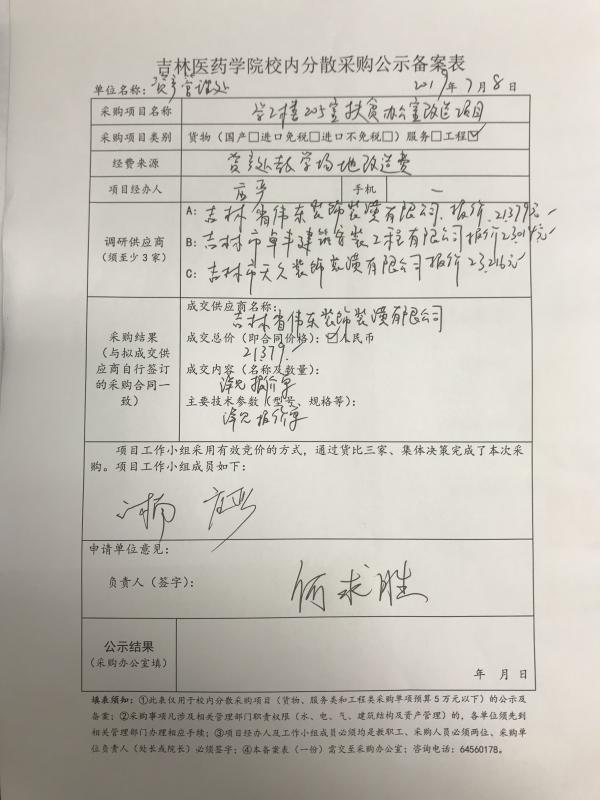 吉林医药学院校内分散采购公示备案表
单位名称：资产管理处 2019年7月8日
采购项目名称 学工楼205室扶贫办公室改造项目
采购项目类别 货物（国产□进口免税□进口不免税□）服务□工程☑
经费来源 资产处教学场地改造费
项目经办人 手机 —
调研供应商
（须至少3家）
A：吉林省伟东装饰装潢有限公司 报价 21379元
B：吉林市卓丰建筑安装工程有限公司 报价23014元
C：吉林市天久装饰装潢有限公司 报价 23216元
采购结果
（与拟成交供
应商自行签订
的采购合同一
致）
成交供应商名称：
吉林省伟东装饰装潢有限公司
成交总价（即合同价格）：☑人民币
21379.
成交内容（名称及数量）：
详见报价单
主要技术参数（型号、规格等）：
详见报价单
项目工作小组采用有效竞价的方式，通过货比三家、集体决策完成了本次采
购。项目工作小组成员如下：
申请单位意见：
负责人（签字）： 何求胜
公示结果
（采购办公室填）
年 月 日
填表须知：①此表仅用于校内分散采购项目（货物、服务类和工程类采购单项预算5万元以下）的公示及
备案；②采购事项凡涉及相关管理部门职责权限（水、电、气、建筑结构及资产管理）的，各单位须先到
相关管理部门办理相应手续；③项目经办人及工作小组成员必须均是教职工、采购人员必须两位、采购单
位负责人（处长或院长）必须签字；④本备案表（一份）需交至采购办公室；咨询电话：64560178。